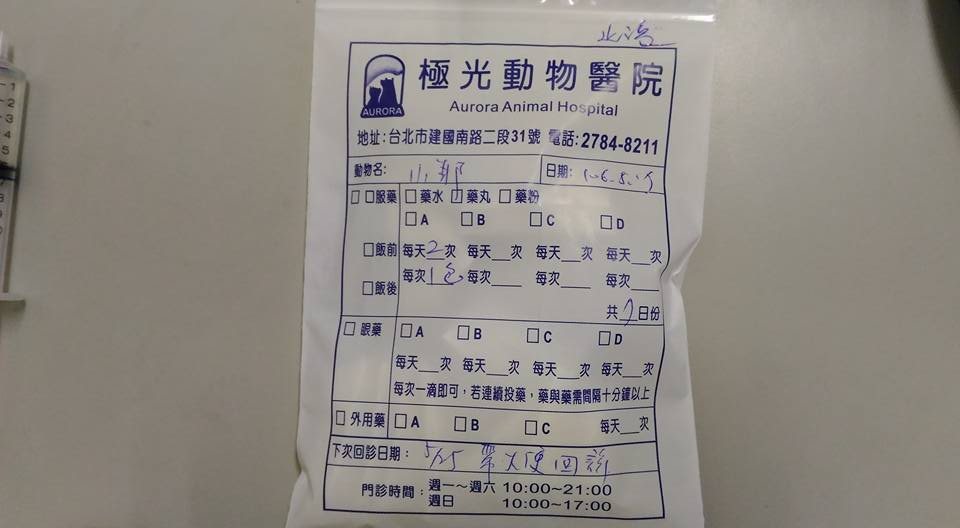 極光動物醫院
AURORA
Aurora Animal Hospital
地址:台北市建國南路二段31號 電話:2784-8211
動物名: 小 日期:
□ 口服藥 □ 藥水 □ 藥丸 □ 藥粉
□ A □ B □ C □ D
□ 飯前 每天2次 每天__次 每天__次 每天__次
每次1包 每次__ 每次__ 每次__
□ 飯後
共7日份
□ 眼藥 □ A □ B □ C □ D
每天__次 每天__次 每天__次 每天__次
每次一滴即可,若連續投藥,藥與藥需間隔十分鐘以上
□ 外用藥 □ A □ B □ C 每天__次
下次回診日期: 5/25 帶大便回診
門診時間: 週一~週六 10:00~21:00
週日 10:00~17:00
1
2
3
4
5